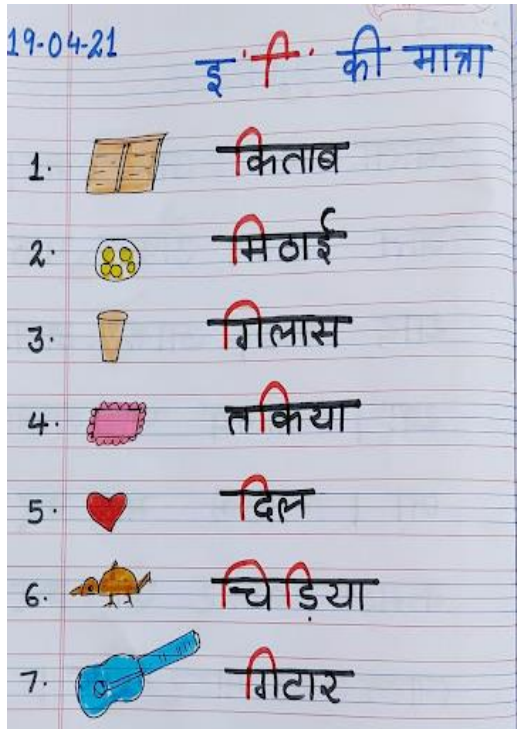 19-04-21
इ 'ि' की मात्रा
1. किताब
2. मिठाई
3. गिलास
4. तकिया
5. दिल
6. चिड़िया
7. गिटार